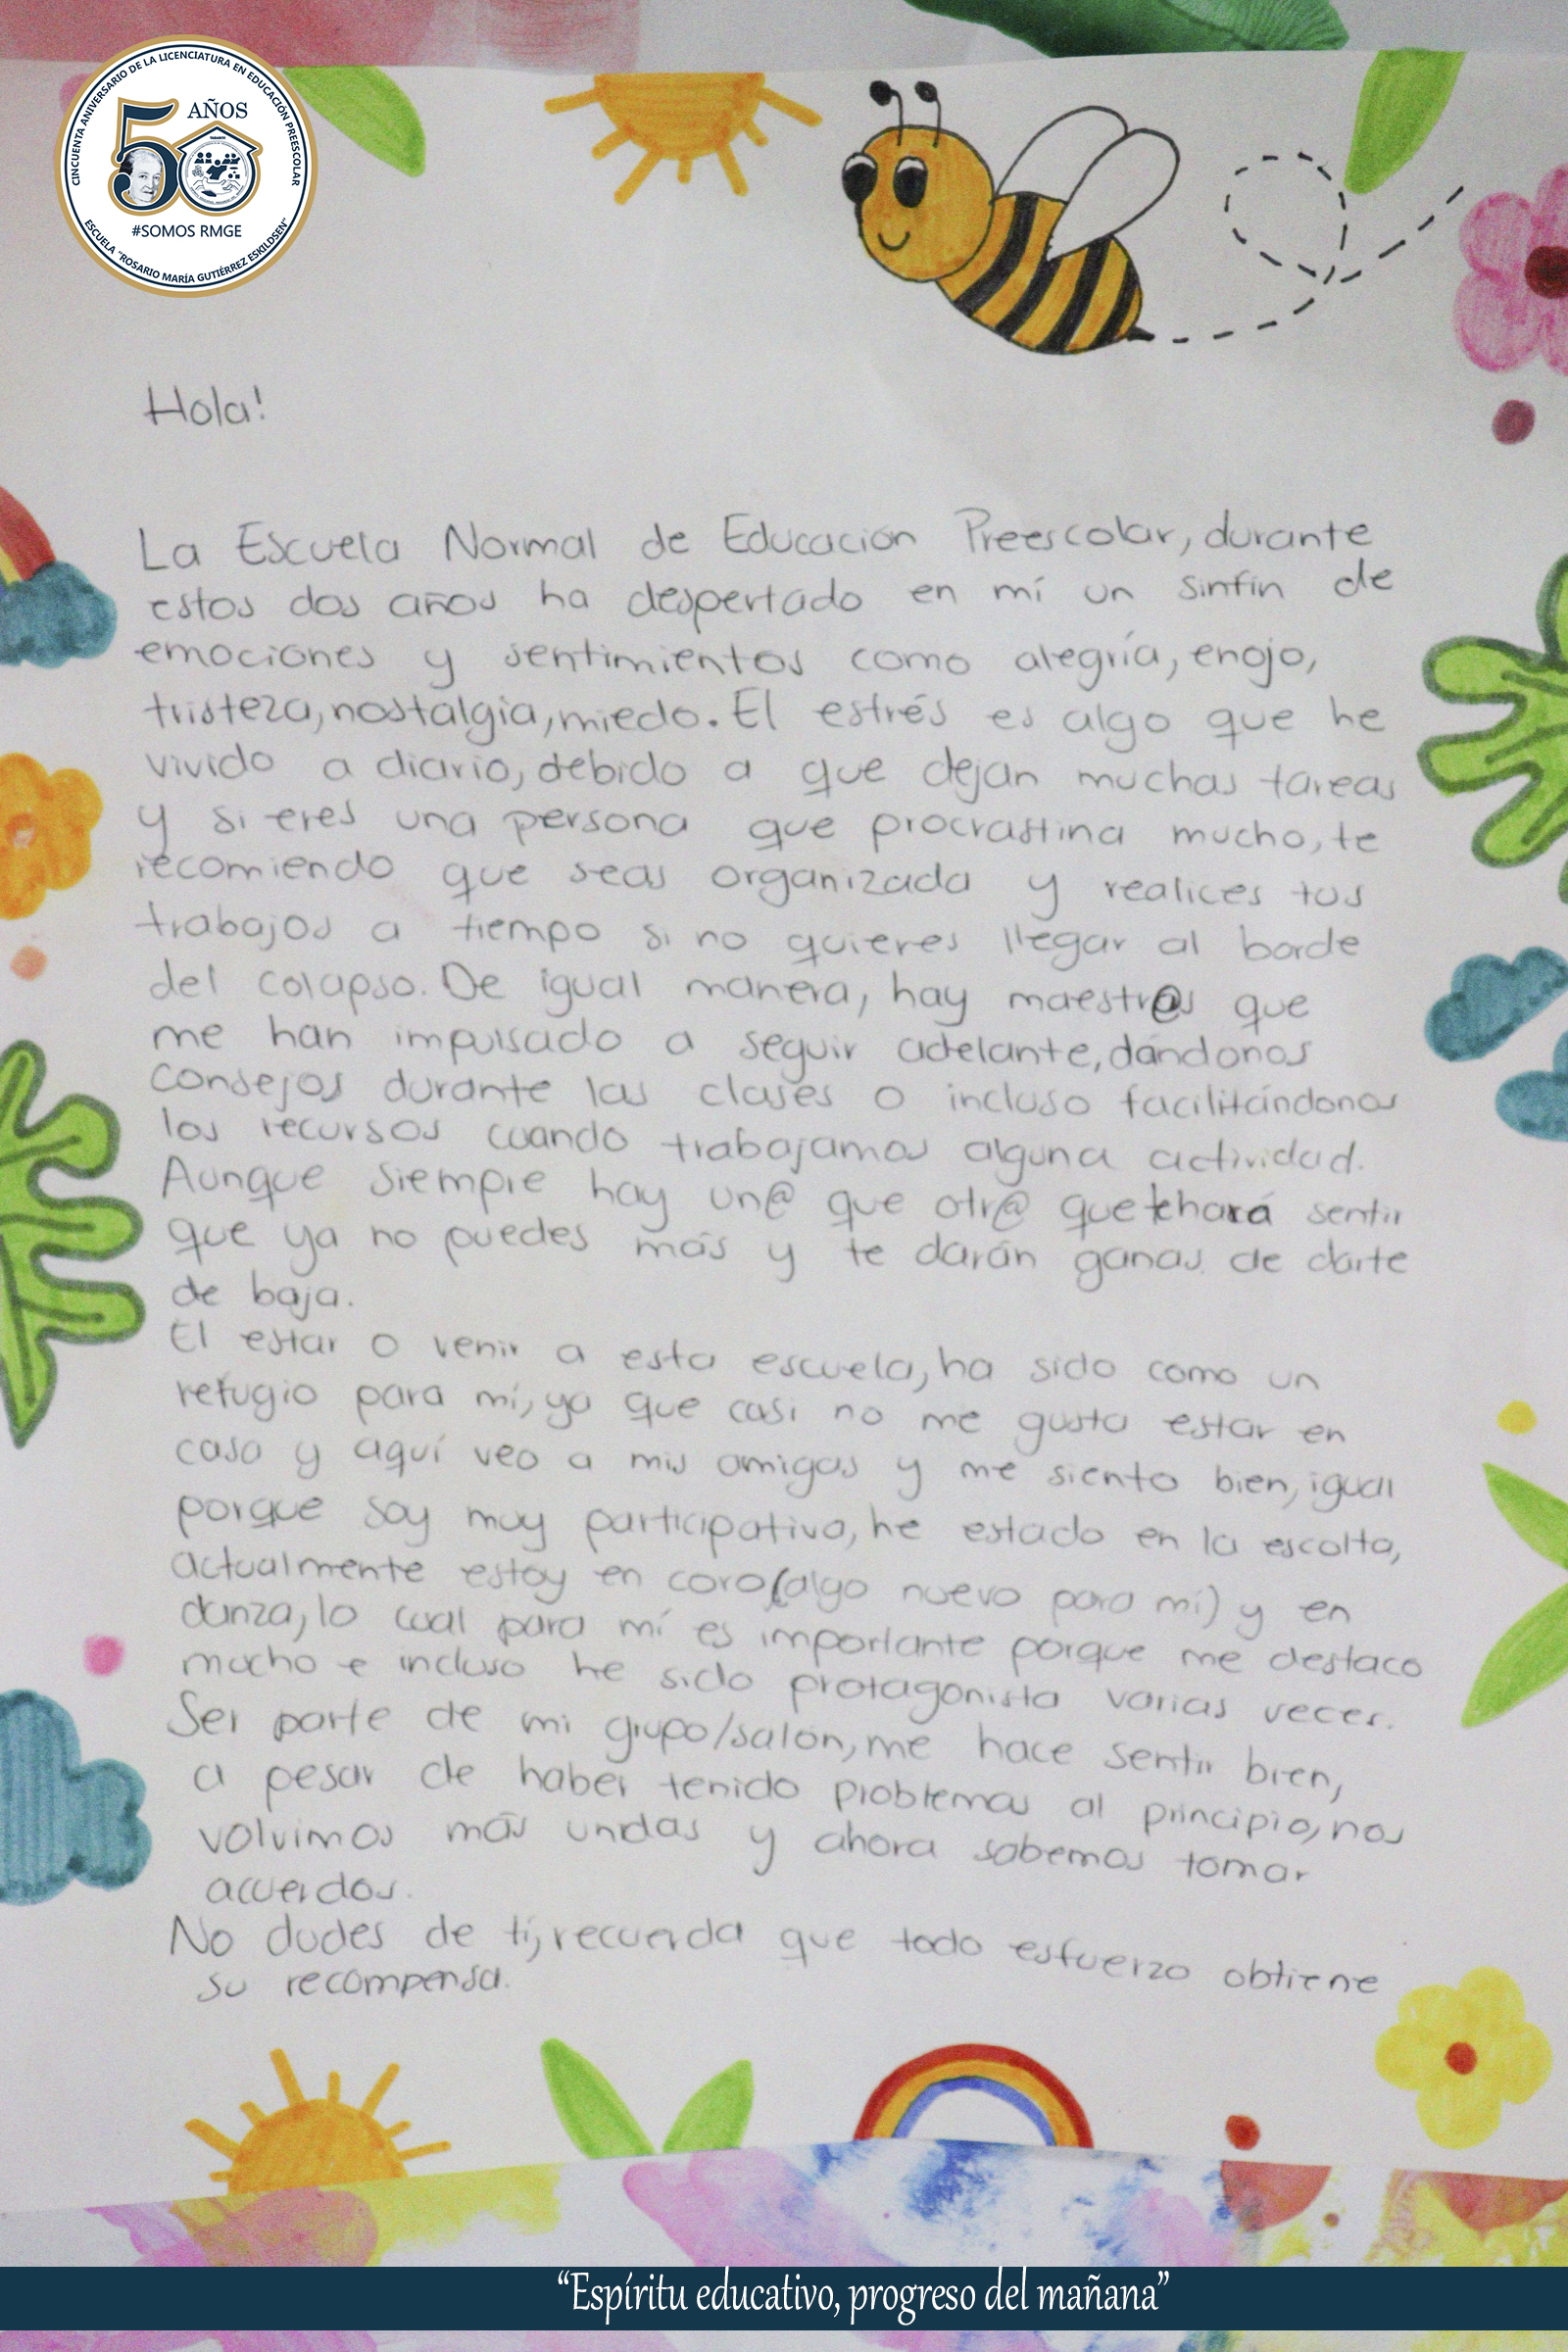 CINCUENTA ANIVERSARIO DE LA LICENCIATURA EN EDUCACIÓN PREESCOLAR
50 AÑOS
#SOMOS RMGE
ESCUELA "ROSARIO MARÍA GUTIÉRREZ ESKILDSEN"
Hola!
La Escuela Normal de Educación Preescolar, durante
estos dos años ha despertado en mí un sinfín de
emociones y sentimientos como alegría, enojo,
tristeza, nostalgia, miedo. El estrés es algo que he
vivido a diario, debido a que dejan muchas tareas
y si eres una persona que procrastina mucho, te
recomiendo que seas organizada y realices tus
trabajos a tiempo si no quieres llegar al borde
del colapso. De igual manera, hay maestr@s que
me han impulsado a seguir adelante, dándonos
consejos durante las clases o incluso facilitándonos
los recursos cuando trabajamos alguna actividad.
Aunque siempre hay un@ que otr@ que te hará sentir
que ya no puedes más y te darán ganas de darte
de baja.
El estar o venir a esta escuela, ha sido como un
refugio para mí, ya que casi no me gusta estar en
casa y aquí veo a mis amigas y me siento bien, igual
porque soy muy participativa, he estado en la escolta,
actualmente estoy en coro (algo nuevo para mí) y en
danza, lo cual para mí es importante porque me destaco
mucho e incluso he sido protagonista varias veces.
Ser parte de mi grupo/salón, me hace sentir bien,
a pesar de haber tenido problemas al principio, nos
volvimos más unidas y ahora sabemos tomar
acuerdos.
No dudes de ti, recuerda que todo esfuerzo obtiene
su recompensa.
"Espíritu educativo, progreso del mañana"